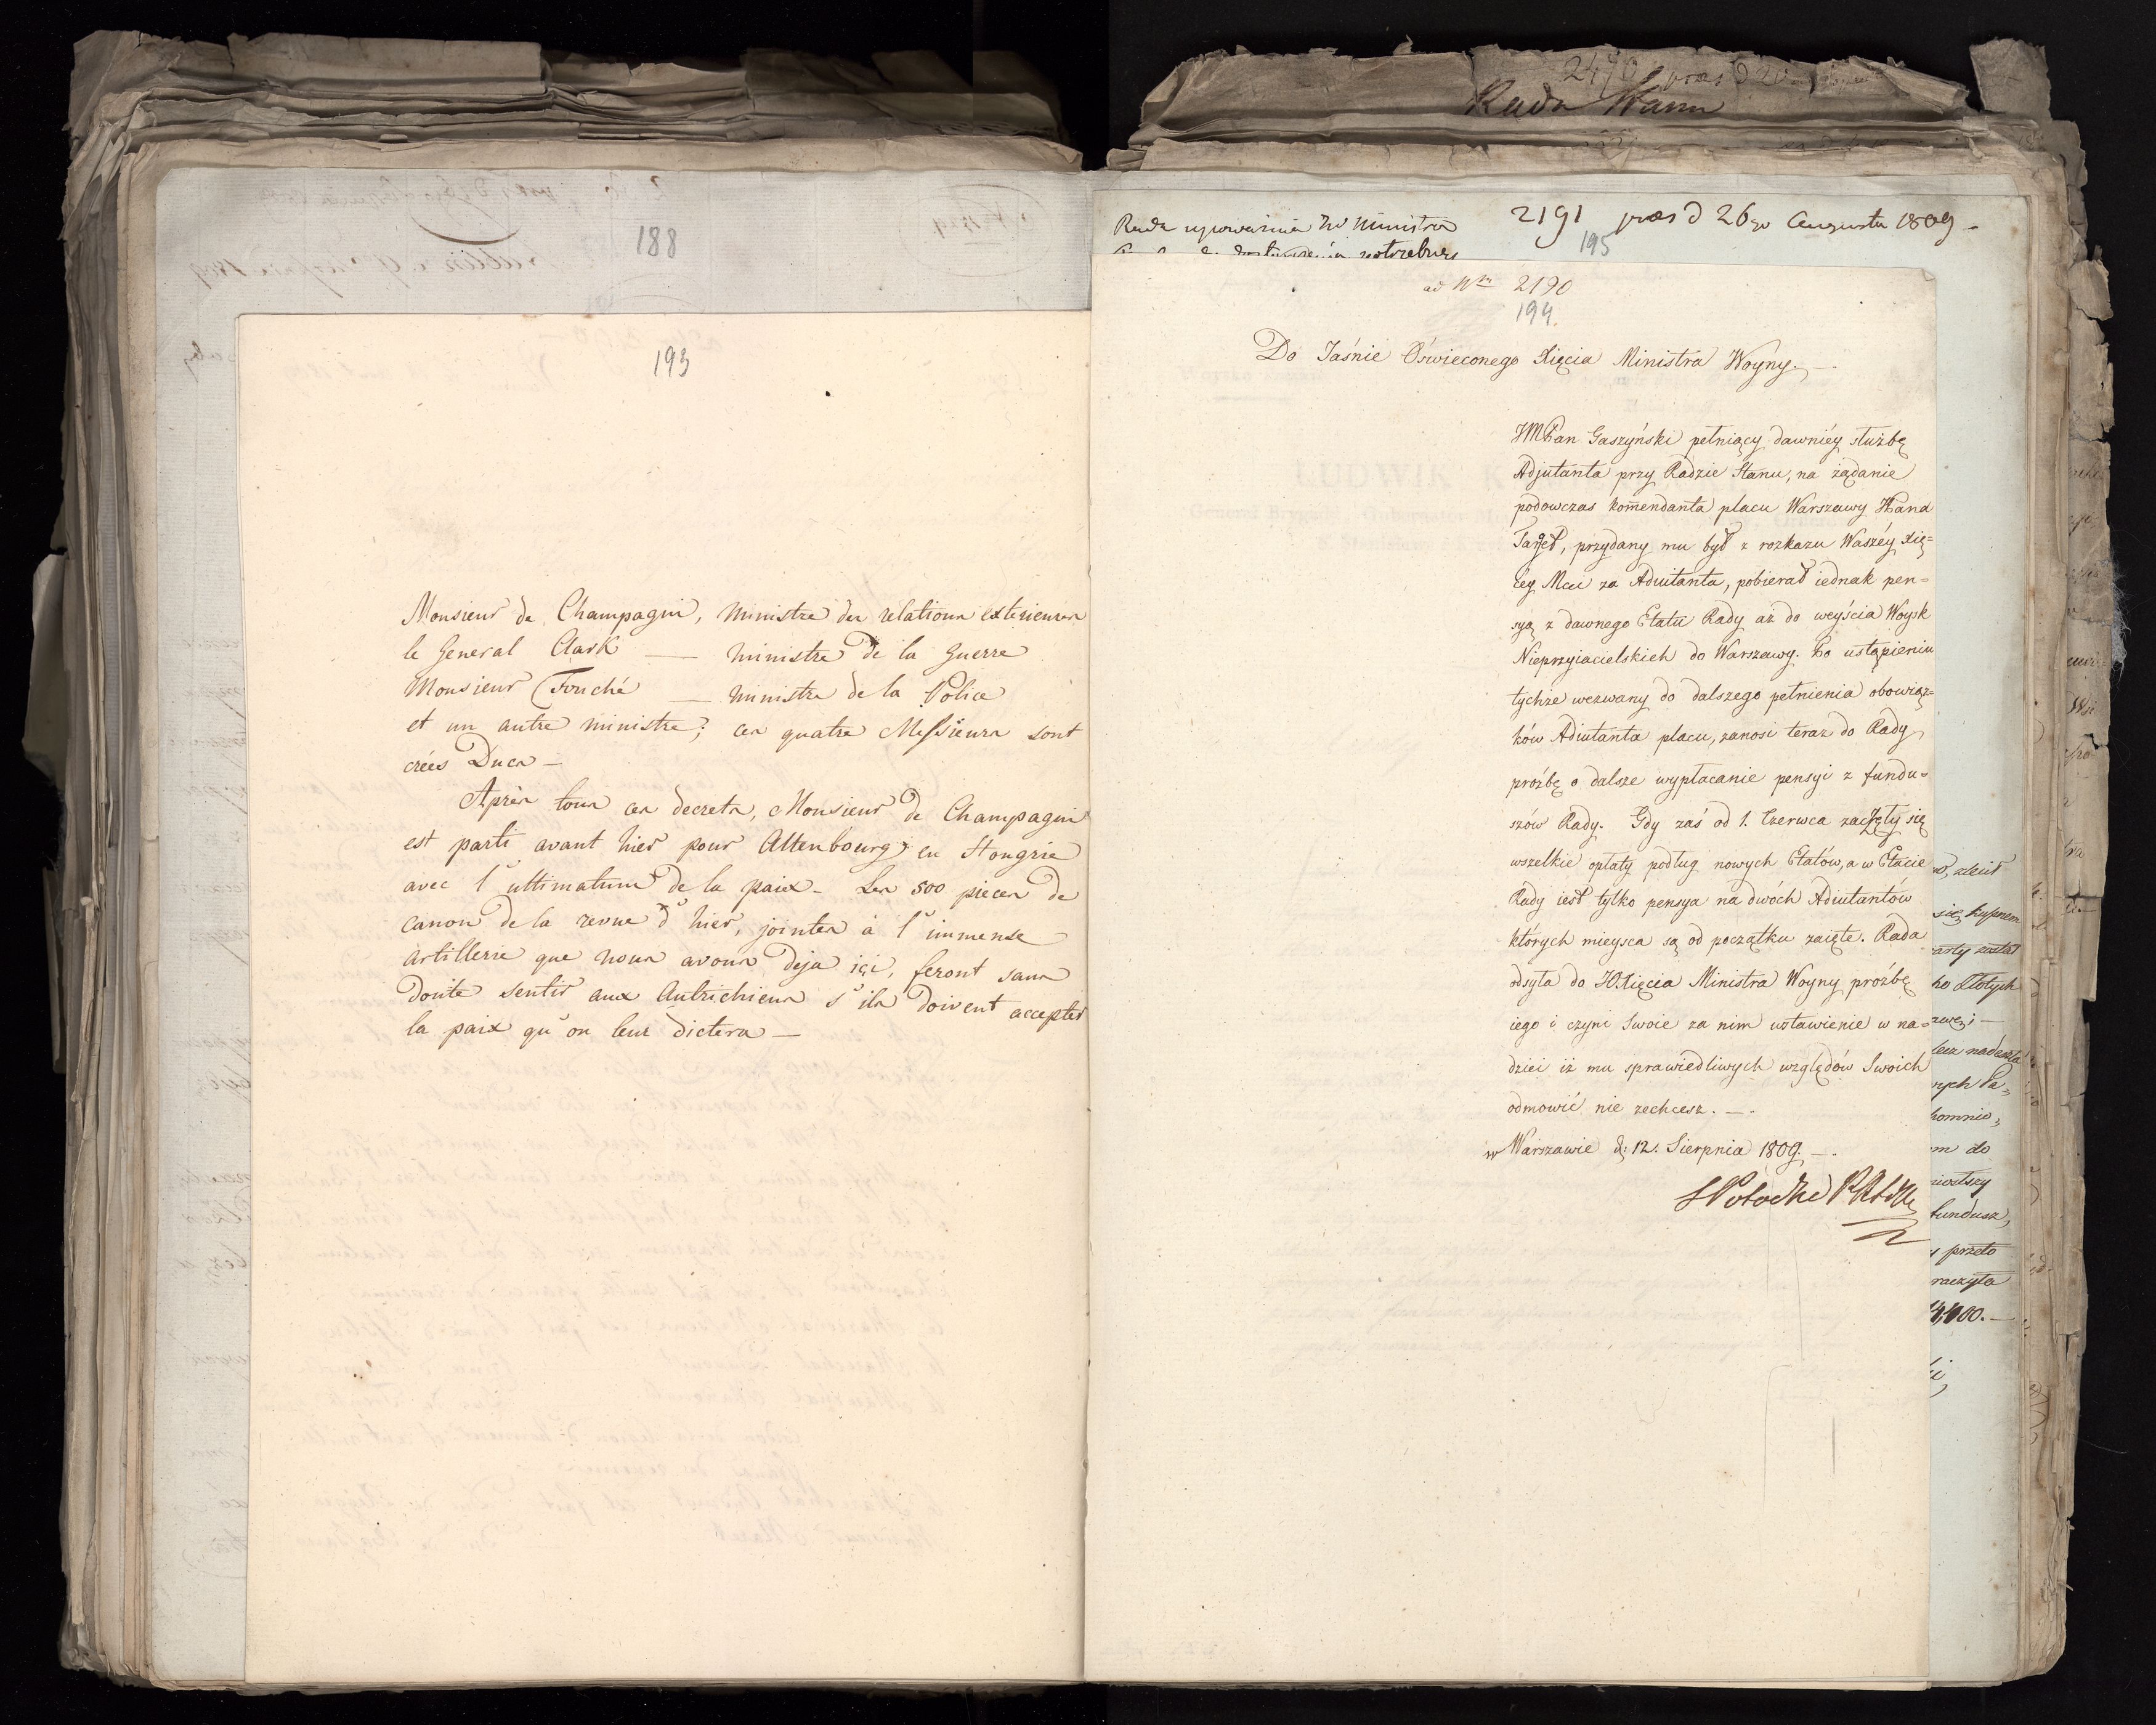 188
193
Monsieur de Champagni, ministre des relations exterieures
le General Clark — ministre de la Guerre
Monsieur Fouché — ministre de la Police
et un autre ministre; ces quatre Messieurs sont
créés Ducs —
Après tous ces decrets, Monsieur de Champagni
est parti avant hier pour Altenbourg en Hongrie
avec l'ultimatum de la paix — Les 500 pieces de
canon de la revue d'hier, jointes à l'immense
artillerie que nous avons deja içi, feront sans
doute sentir aux Autrichiens s'ils doivent accepter
la paix qu'on leur dictera —
Rada Stanu
Rada upoważnia Xcia Ministra
2191 præs d 26go Augusta 1809 -
195
potrzebney
ad Nrm 2190
194.
Do Jaśnie Oświeconego Xięcia Ministra Woyny. —.
JMPan Gaszyński pełniący dawniéy służbę
Adjutanta przy Radzie Stanu, na żądanie
podowczas kom̄endanta placu Warszawy JPana
, przydany mu był z rozkazu Waszéy Xię=
cey Mci za Adiutanta, pobierał iednak pen=
syą z dawnego Etatu Rady aż do weyścia Woysk
Nieprzyiacielskich do Warszawy. Po ustąpieniu
tychże wezwany do dalszego pełnienia obowiąz=
ków Adiutanta placu, zanosi teraz do Rady
prośbę o dalsze wypłacanie pensyi z fundu=
szów Rady. Gdy zaś od 1. Czerwca zaczęły się
wszelkie opłaty podług nowych Etatów, a w Etacie
Rady iest tylko pensya na dwóch Adiutantów
których mieysca są od początku zaięte. Rada
odsyła do JOXięcia Ministra Woyny prośbę
iego i czyni swoie za nim wstawienie w na=
dziei iż mu sprawiedliwych względów Swoich
odmowić nie zechcesz. —.
w Warszawie d: 12. Sierpnia 1809. —.
S Potocki
się kupnem
został
Złotych
nadeszła
do
fundusz,
przeto
raczyła